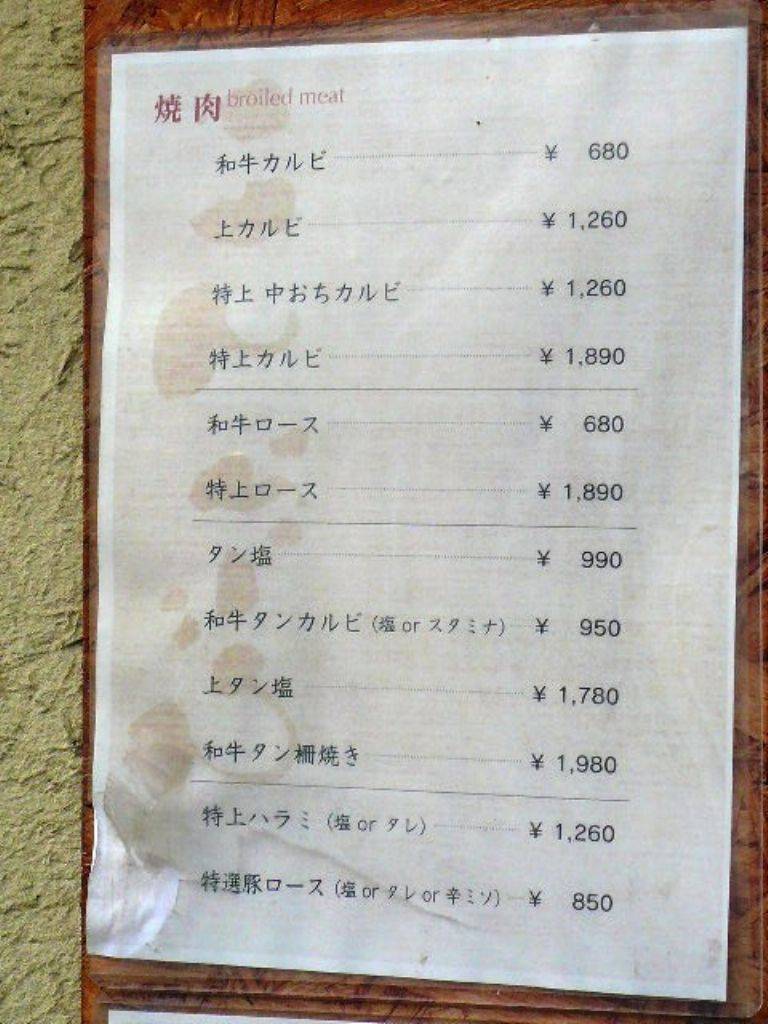 焼肉 broiled meat
和牛カルビ ¥ 680
上カルビ ¥ 1,260
特上 中おちカルビ ¥ 1,260
特上カルビ ¥ 1,890
和牛ロース ¥ 680
特上ロース ¥ 1,890
タン塩 ¥ 990
和牛タンカルビ (塩 or スタミナ) ¥ 950
上タン塩 ¥ 1,780
和牛タン柵焼き ¥ 1,980
特上ハラミ (塩 or タレ) ¥ 1,260
特選豚ロース (塩 or タレ or 辛ミソ) ¥ 850